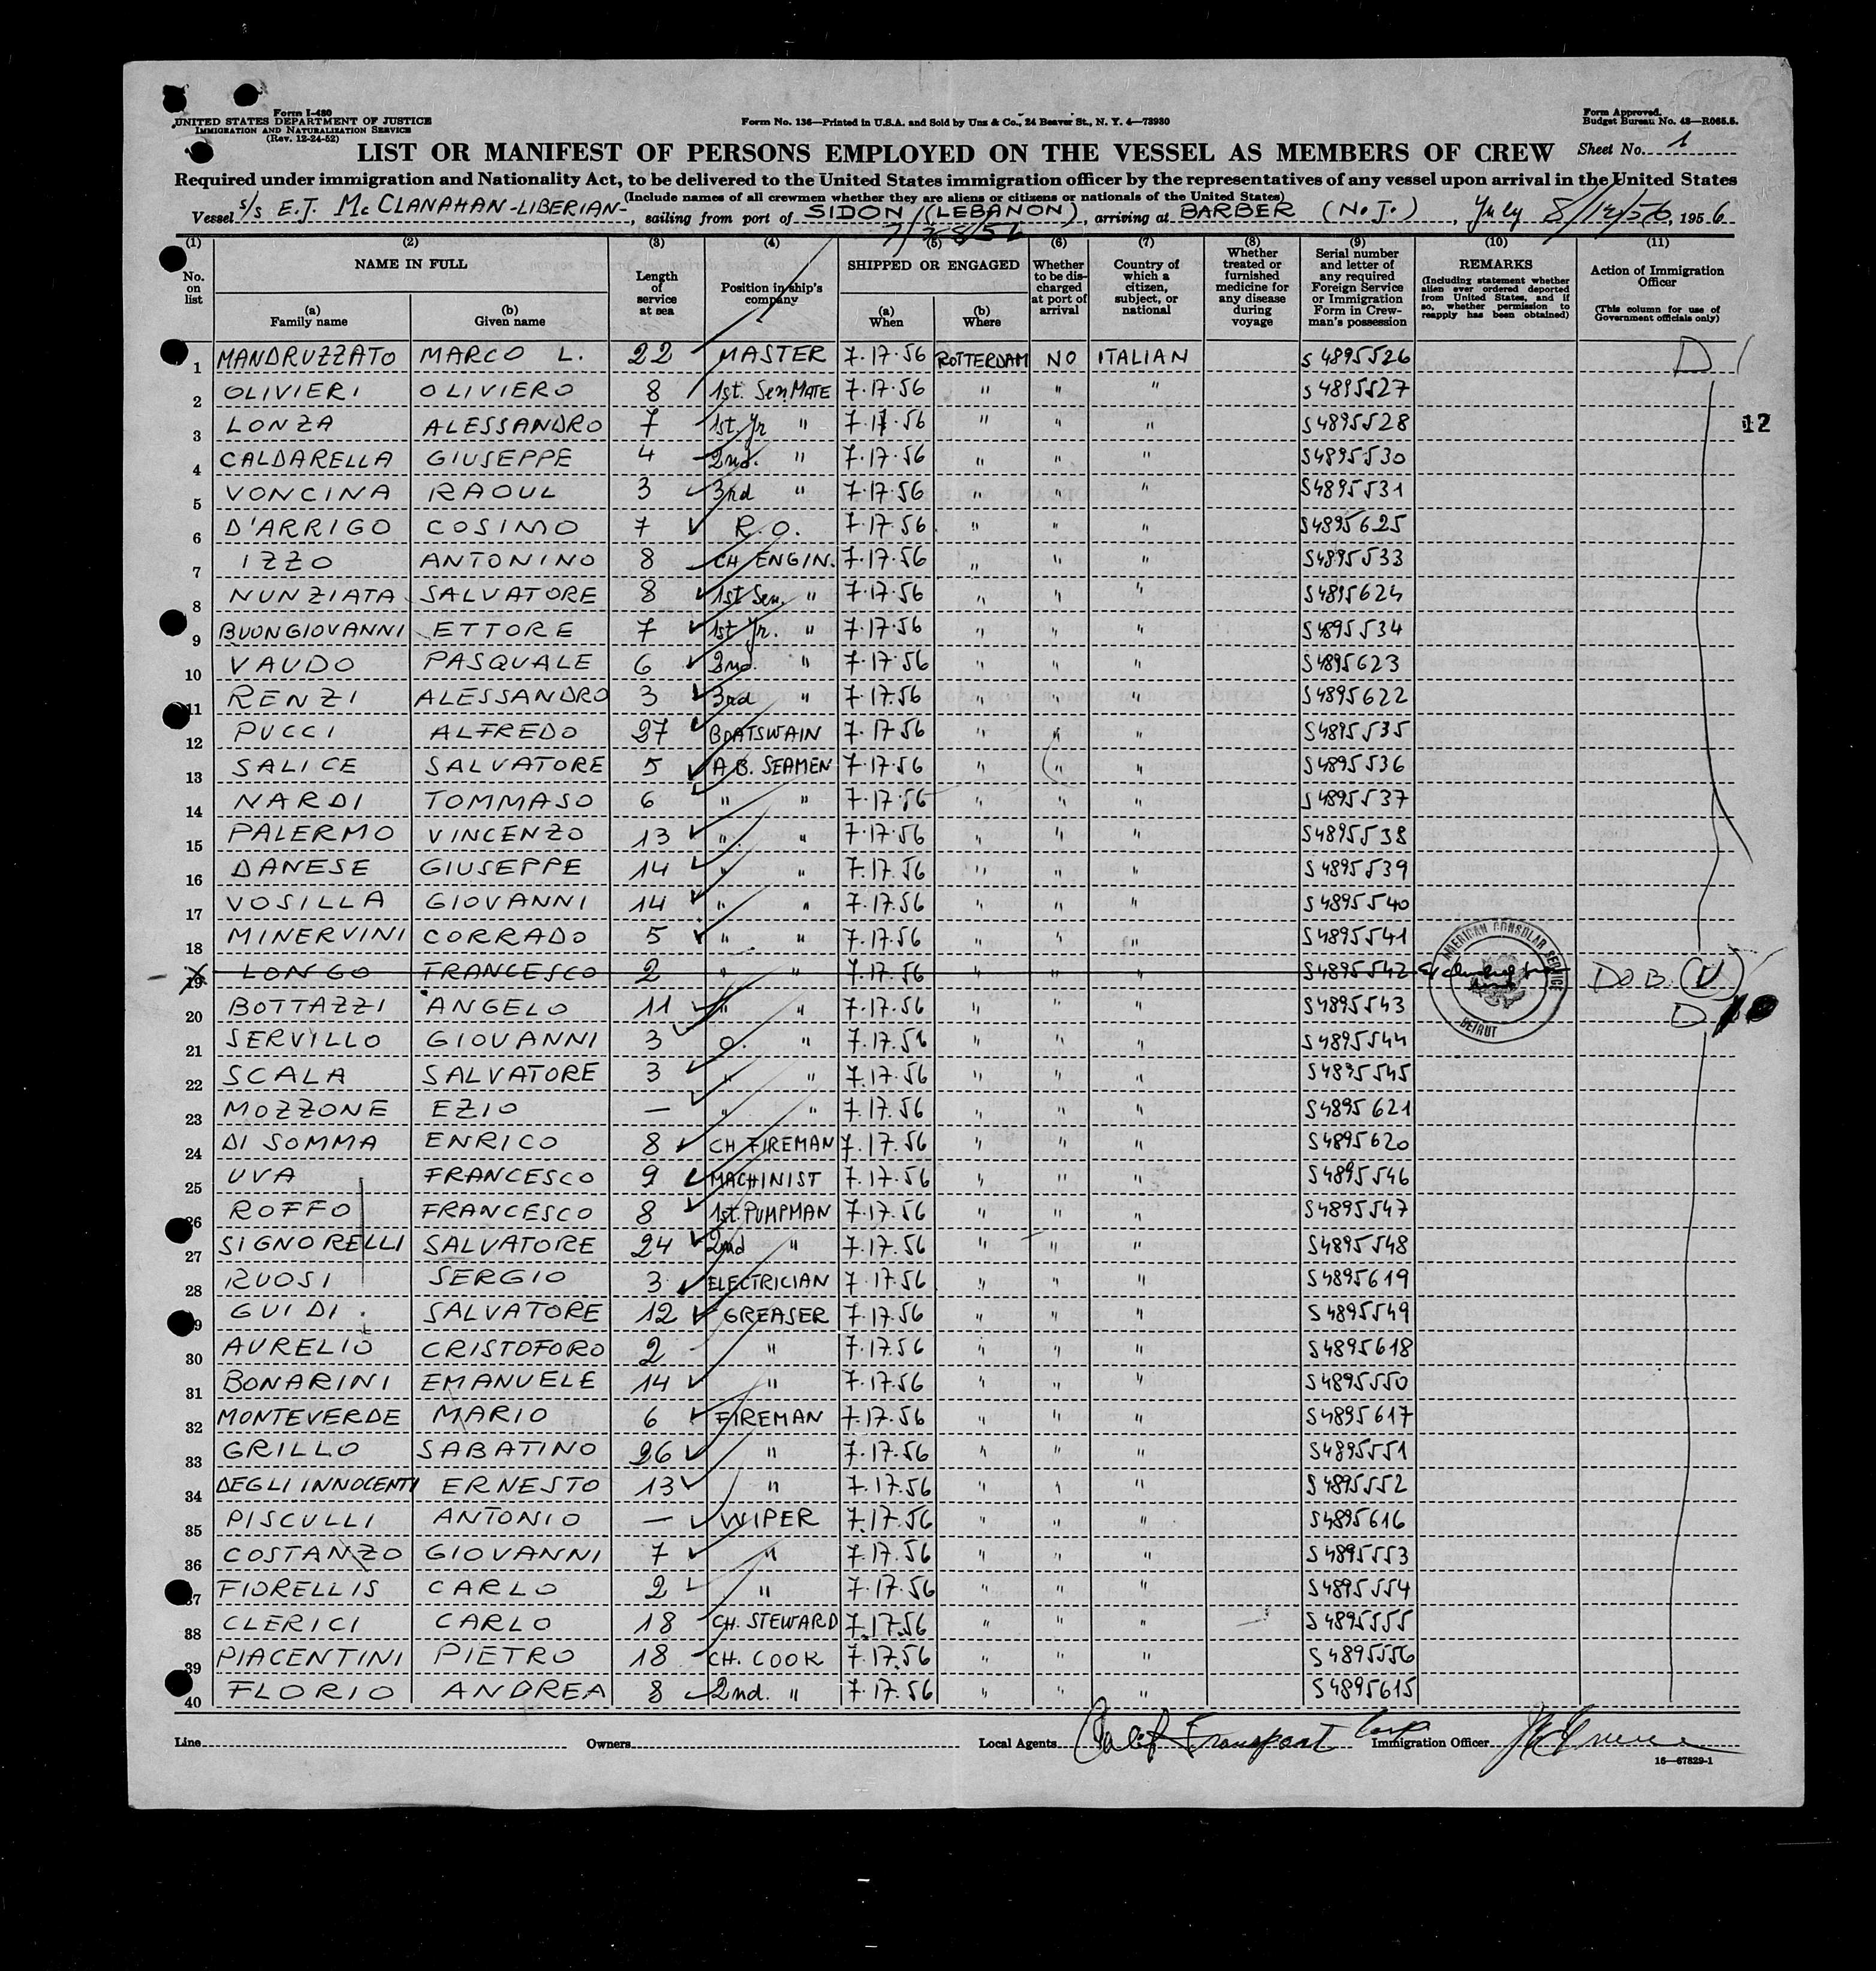 Form I-480
UNITED STATES DEPARTMENT OF JUSTICE
IMMIGRATION AND NATURALIZATION SERVICE
(Rev. 12-24-52)
Form No. 136—Printed in U.S.A. and Sold by Unz & Co., 24 Beaver St., N. Y. 4—73930
Form Approved.
Budget Bureau No. 43—R065.5.
LIST OR MANIFEST OF PERSONS EMPLOYED ON THE VESSEL AS MEMBERS OF CREW
Sheet No. 1
Required under immigration and Nationality Act, to be delivered to the United States immigration officer by the representatives of any vessel upon arrival in the United States
(Include names of all crewmen whether they are aliens or citizens or nationals of the United States)
Vessel S/S E.J. McCLANAHAN-LIBERIAN-, sailing from port of SIDON (LEBANON), arriving at BARBER (N.J.), July 8/12/56, 1956
7/28/56
(1) No. on list
(2) NAME IN FULL (a) Family name (b) Given name
(3) Length of service at sea
(4) Position in ship's company
(5) SHIPPED OR ENGAGED (a) When (b) Where
(6) Whether to be discharged at port of arrival
(7) Country of which a citizen, subject, or national
(8) Whether treated or furnished medicine for any disease during voyage
(9) Serial number and letter of any required Foreign Service or Immigration Form in Crewman's possession
(10) REMARKS (Including statement whether alien ever ordered deported from United States, and if so, whether permission to reapply has been obtained)
(11) Action of Immigration Officer (This column for use of Government officials only)
1 MANDRUZZATO MARCO L. 22 MASTER 7.17.56 ROTTERDAM NO ITALIAN S 4895526 D
2 OLIVIERI OLIVIERO 8 1st. Sen. MATE 7.17.56 " " " S 4895527
3 LONZA ALESSANDRO 7 1st. Jr " 7.17.56 " " " S4895528 12
4 CALDARELLA GIUSEPPE 4 2nd. " 7.17.56 " " " S4895530
5 VONCINA RAOUL 3 3rd " 7.17.56 " " " S4895531
6 D'ARRIGO COSIMO 7 R.O. 7.17.56 " " " S4895625
7 IZZO ANTONINO 8 CH. ENGIN. 7.17.56 " " " S4895533
8 NUNZIATA SALVATORE 8 1st Sen. " 7.17.56 " " " S4895624
9 BUONGIOVANNI ETTORE 7 1st Jr. " 7.17.56 " " " S4895534
10 VAUDO PASQUALE 6 2nd. " 7.17.56 " " " S4895623
11 RENZI ALESSANDRO 3 3rd " 7.17.56 " " " S4895622
12 PUCCI ALFREDO 27 BOATSWAIN 7.17.56 " " " S4895535
13 SALICE SALVATORE 5 A.B. SEAMEN 7.17.56 " " " S4895536
14 NARDI TOMMASO 6 " " 7.17.56 " " " S4895537
15 PALERMO VINCENZO 13 " " 7.17.56 " " " S4895538
16 DANESE GIUSEPPE 14 " " 7.17.56 " " " S4895539
17 VOSILLA GIOVANNI 14 " " 7.17.56 " " " S4895540
18 MINERVINI CORRADO 5 " " 7.17.56 " " " S4895541
19 LONGO FRANCESCO 2 " " 7.17.56 " " " S4895542 DOB. (V)
AMERICAN CONSULAR SERVICE BEIRUT
20 BOTTAZZI ANGELO 11 " " 7.17.56 " " " S4895543 D
21 SERVILLO GIOVANNI 3 O. " 7.17.56 " " " S4895544
22 SCALA SALVATORE 3 " " 7.17.56 " " " S4895545
23 MOZZONE EZIO — " " 7.17.56 " " " S4895621
24 DI SOMMA ENRICO 8 CH. FIREMAN 7.17.56 " " " S4895620
25 UVA FRANCESCO 9 MACHINIST 7.17.56 " " " S4895546
26 ROFFO FRANCESCO 8 1st. PUMPMAN 7.17.56 " " " S4895547
27 SIGNORELLI SALVATORE 24 2nd " 7.17.56 " " " S4895548
28 RUOSI SERGIO 3 ELECTRICIAN 7.17.56 " " " S4895619
29 GUIDI SALVATORE 12 GREASER 7.17.56 " " " S4895549
30 AURELIO CRISTOFORO 2 " 7.17.56 " " " S4895618
31 BONARINI EMANUELE 14 " 7.17.56 " " " S4895550
32 MONTEVERDE MARIO 6 FIREMAN 7.17.56 " " " S4895617
33 GRILLO SABATINO 26 " 7.17.56 " " " S4895551
34 DEGLI INNOCENTI ERNESTO 13 " 7.17.56 " " " S4895552
35 PISCULLI ANTONIO — WIPER 7.17.56 " " " S4895616
36 COSTANZO GIOVANNI 7 " 7.17.56 " " " S4895553
37 FIORELLIS CARLO 2 " 7.17.56 " " " S4895554
38 CLERICI CARLO 18 CH. STEWARD 7.17.56 " " " S4895555
39 PIACENTINI PIETRO 18 CH. COOK 7.17.56 " " " S4895556
40 FLORIO ANDREA 8 2nd. " 7.17.56 " " " S4895615
Line Owners Local Agents Calif Transport Corp Immigration Officer
16—67829-1